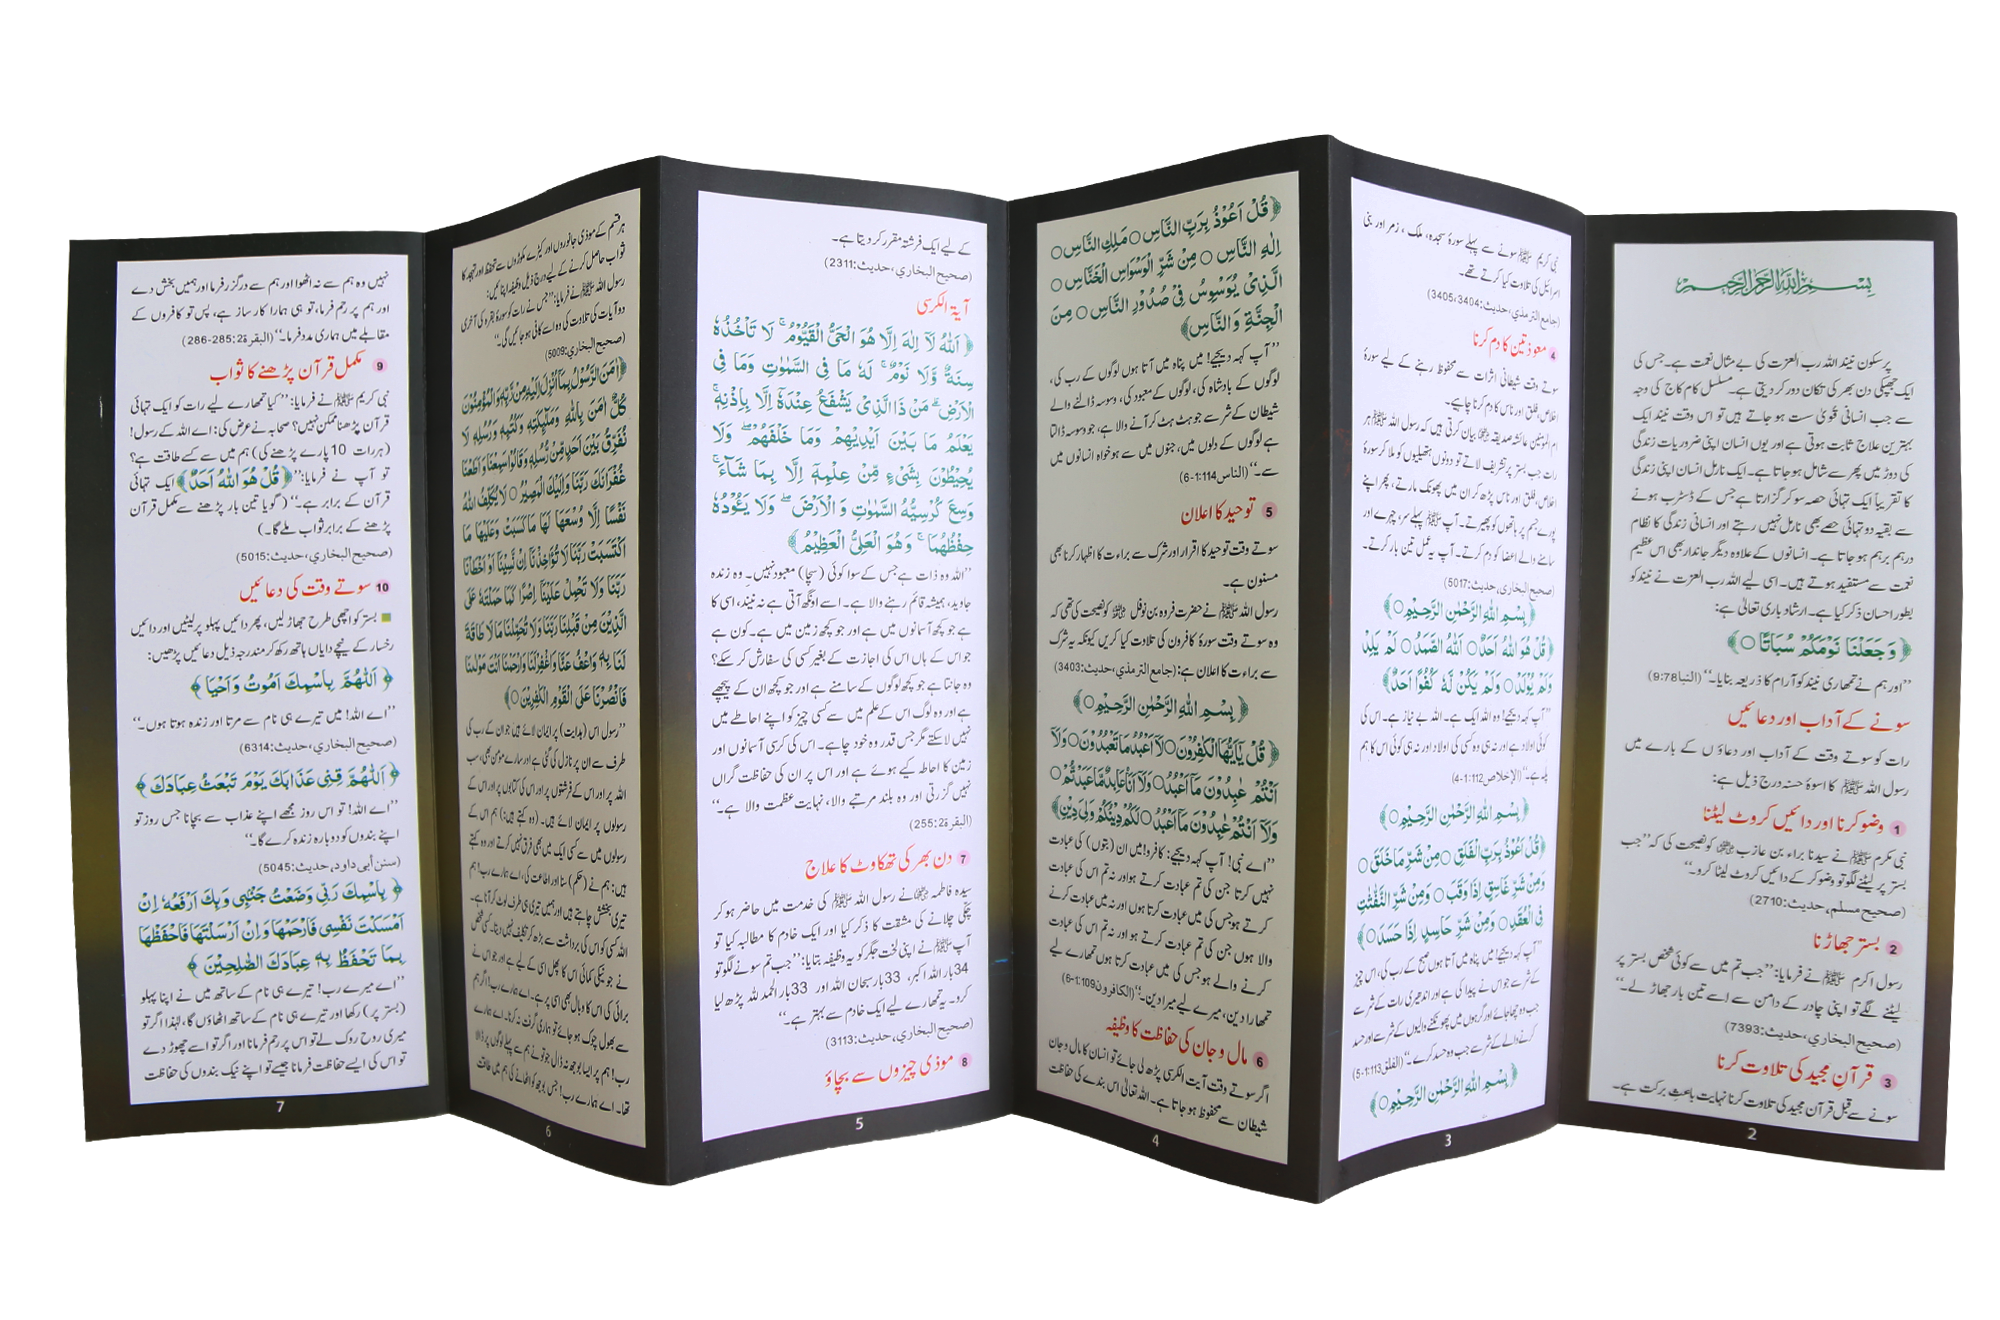 بِسْمِ اللهِ الرَّحْمٰنِ الرَّحِيْمِ
پرسکون نیند اللہ رب العزت کی بے مثال نعمت ہے۔ جس کی
ایک جھپکی دن بھر کی تکان دور کر دیتی ہے۔ مسلسل کام کاج کی وجہ
سے جب انسانی قویٰ سست ہو جاتے ہیں تو اس وقت نیند ایک
بہترین علاج ثابت ہوتی ہے اور یوں انسان اپنی ضروریات زندگی
کی دوڑ میں پھر سے شامل ہو جاتا ہے۔ ایک نارمل انسان اپنی زندگی
کا تقریباً ایک تہائی حصہ سو کر گزارتا ہے جس کے ڈسٹرب ہونے
سے بقیہ دو تہائی حصے بھی نارمل نہیں رہتے اور انسانی زندگی کا نظام
درہم برہم ہو جاتا ہے۔ انسانوں کے علاوہ دیگر جاندار بھی اس عظیم
نعمت سے مستفید ہوتے ہیں۔ اسی لیے اللہ رب العزت نے نیند کو
بطور احسان ذکر کیا ہے۔ ارشاد باری تعالیٰ ہے:
﴿وَجَعَلْنَا نَوْمَكُمْ سُبَاتًا ○﴾
’’اور ہم نے تمھاری نیند کو آرام کا ذریعہ بنایا۔‘‘ (النبا 9:78)
سونے کے آداب اور دعائیں
رات کو سوتے وقت کے آداب اور دعاؤں کے بارے میں
رسول اللہ ﷺ کا اسوۂ حسنہ درج ذیل ہے:
1 وضو کرنا اور دائیں کروٹ لیٹنا
نبی مکرم ﷺ نے سیدنا براء بن عازب کو نصیحت کی کہ ’’جب
بستر پر لیٹنے لگو تو وضو کر کے دائیں کروٹ لیٹا کرو۔‘‘
(صحیح مسلم، حدیث: 2710)
2 بستر جھاڑنا
رسول اکرم ﷺ نے فرمایا: ’’جب تم میں سے کوئی شخص بستر پر
لیٹنے لگے تو اپنی چادر کے دامن سے اسے تین بار جھاڑ لے۔‘‘
(صحیح البخاري، حدیث: 7393)
3 قرآن مجید کی تلاوت کرنا
سونے سے قبل قرآن مجید کی تلاوت کرنا نہایت باعث برکت ہے۔
2
نبی کریم ﷺ سونے سے پہلے سورۂ سجدہ، ملک، زمر اور بنی
اسرائیل کی تلاوت کیا کرتے تھے۔
(جامع الترمذي، حدیث: 3404، 3405)
4 معوذتین کا دم کرنا
سوتے وقت شیطانی اثرات سے محفوظ رہنے کے لیے سورۂ
اخلاص، فلق اور ناس کا دم کرنا چاہیے۔
ام المؤمنین عائشہ صدیقہ بیان کرتی ہیں کہ رسول اللہ ﷺ ہر
رات جب بستر پر تشریف لاتے تو دونوں ہتھیلیوں کو ملا کر سورۂ
اخلاص، فلق اور ناس پڑھ کر ان میں پھونک مارتے، پھر اپنے
پورے جسم پر ہاتھوں کو پھیرتے۔ آپ ﷺ پہلے سر، چہرے اور
سامنے والے اعضا کو دم کرتے۔ آپ یہ عمل تین بار کرتے۔
(صحیح البخاري، حدیث: 5017)
﴿بِسْمِ اللهِ الرَّحْمٰنِ الرَّحِيْمِ ○﴾
﴿قُلْ هُوَ اللهُ اَحَدٌ ○ اَللهُ الصَّمَدُ ○ لَمْ يَلِدْ
وَلَمْ يُوْلَدْ ○ وَلَمْ يَكُنْ لَّهٗ كُفُوًا اَحَدٌ ○﴾
’’آپ کہہ دیجیے! وہ اللہ ایک ہے۔ اللہ بے نیاز ہے۔ اس کی
کوئی اولاد ہے اور نہ ہی وہ کسی کی اولاد اور نہ ہی کوئی اس کا ہم
پلہ ہے۔‘‘ (الإخلاص 112:1-4)
﴿بِسْمِ اللهِ الرَّحْمٰنِ الرَّحِيْمِ ○﴾
﴿قُلْ اَعُوْذُ بِرَبِّ الْفَلَقِ ○ مِنْ شَرِّ مَا خَلَقَ ○
وَمِنْ شَرِّ غَاسِقٍ اِذَا وَقَبَ ○ وَمِنْ شَرِّ النَّفّٰثٰتِ
فِي الْعُقَدِ ○ وَمِنْ شَرِّ حَاسِدٍ اِذَا حَسَدَ ○﴾
’’آپ کہہ دیجیے! میں پناہ میں آتا ہوں صبح کے رب کی، اس چیز
کے شر سے جو اس نے پیدا کی ہے اور اندھیری رات کے شر سے
جب وہ چھا جائے اور گرہوں میں پھونکنے والیوں کے شر سے اور حسد
کرنے والے کے شر سے جب وہ حسد کرے۔‘‘ (الفلق 113:1-5)
﴿بِسْمِ اللهِ الرَّحْمٰنِ الرَّحِيْمِ ○﴾
3
﴿قُلْ اَعُوْذُ بِرَبِّ النَّاسِ ○ مَلِكِ النَّاسِ ○
اِلٰهِ النَّاسِ ○ مِنْ شَرِّ الْوَسْوَاسِ الْخَنَّاسِ ○
الَّذِيْ يُوَسْوِسُ فِيْ صُدُوْرِ النَّاسِ ○ مِنَ
الْجِنَّةِ وَالنَّاسِ﴾
’’آپ کہہ دیجیے! میں پناہ میں آتا ہوں لوگوں کے رب کی،
لوگوں کے بادشاہ کی، لوگوں کے معبود کی، وسوسہ ڈالنے والے
شیطان کے شر سے جو ہٹ ہٹ کر آنے والا ہے، جو وسوسہ ڈالتا
ہے لوگوں کے دلوں میں، جنوں میں سے ہو خواہ انسانوں میں
سے۔‘‘ (الناس 114:1-6)
5 توحید کا اعلان
سوتے وقت توحید کا اقرار اور شرک سے براءت کا اظہار کرنا بھی
مسنون ہے۔
رسول اللہ ﷺ نے حضرت فروہ بن نوفل کو نصیحت کی تھی کہ
وہ سوتے وقت سورۂ کافرون کی تلاوت کیا کریں کیونکہ یہ شرک
سے براءت کا اعلان ہے: (جامع الترمذي، حدیث: 3403)
﴿بِسْمِ اللهِ الرَّحْمٰنِ الرَّحِيْمِ ○﴾
﴿قُلْ يٰٓاَيُّهَا الْكٰفِرُوْنَ ○ لَا اَعْبُدُ مَا تَعْبُدُوْنَ ○ وَلَا
اَنْتُمْ عٰبِدُوْنَ مَا اَعْبُدُ ○ وَلَا اَنَا عَابِدٌ مَّا عَبَدْتُّمْ ○
وَلَا اَنْتُمْ عٰبِدُوْنَ مَا اَعْبُدُ ○ لَكُمْ دِيْنُكُمْ وَلِيَ دِيْنِ﴾
’’اے نبی! آپ کہہ دیجیے: کافرو! میں ان (بتوں) کی عبادت
نہیں کرتا جن کی تم عبادت کرتے ہو اور نہ تم اس کی عبادت
کرتے ہو جس کی میں عبادت کرتا ہوں اور نہ میں عبادت کرنے
والا ہوں جن کی تم عبادت کرتے ہو اور نہ تم اس کی عبادت
کرنے والے ہو جس کی میں عبادت کرتا ہوں تمھارے لیے
تمھارا دین، میرے لیے میرا دین۔‘‘ (الکافرون 109:1-6)
6 مال و جان کی حفاظت کا وظیفہ
اگر سوتے وقت آیت الکرسی پڑھ لی جائے تو انسان کا مال و جان
شیطان سے محفوظ ہو جاتا ہے۔ اللہ تعالیٰ اس بندے کی حفاظت
4
کے لیے ایک فرشتہ مقرر کر دیتا ہے۔
(صحیح البخاري، حدیث: 2311)
آیۃ الکرسی
﴿اَللهُ لَآ اِلٰهَ اِلَّا هُوَ الْحَيُّ الْقَيُّوْمُ ۚ لَا تَاْخُذُهٗ
سِنَةٌ وَّلَا نَوْمٌ ۚ لَهٗ مَا فِي السَّمٰوٰتِ وَمَا فِي
الْاَرْضِ ۗ مَنْ ذَا الَّذِيْ يَشْفَعُ عِنْدَهٗٓ اِلَّا بِاِذْنِهٖ ۚ
يَعْلَمُ مَا بَيْنَ اَيْدِيْهِمْ وَمَا خَلْفَهُمْ ۖ وَلَا
يُحِيْطُوْنَ بِشَيْءٍ مِّنْ عِلْمِهٖٓ اِلَّا بِمَا شَآءَ ۚ
وَسِعَ كُرْسِيُّهُ السَّمٰوٰتِ وَالْاَرْضَ ۖ وَلَا يَئُوْدُهٗ
حِفْظُهُمَا ۚ وَهُوَ الْعَلِيُّ الْعَظِيْمُ﴾
’’اللہ وہ ذات ہے جس کے سوا کوئی (سچا) معبود نہیں۔ وہ زندہ
جاوید، ہمیشہ قائم رہنے والا ہے۔ اسے اونگھ آتی ہے نہ نیند، اسی کا
ہے جو کچھ آسمانوں میں ہے اور جو کچھ زمین میں ہے۔ کون ہے
جو اس کے ہاں اس کی اجازت کے بغیر کسی کی سفارش کر سکے؟
وہ جانتا ہے جو کچھ لوگوں کے سامنے ہے اور جو کچھ ان کے پیچھے
ہے اور وہ لوگ اس کے علم میں سے کسی چیز کو اپنے احاطے میں
نہیں لا سکتے مگر جس قدر وہ خود چاہے۔ اس کی کرسی آسمانوں اور
زمین کا احاطہ کیے ہوئے ہے اور اس پر ان کی حفاظت گراں
نہیں گزرتی اور وہ بلند مرتبے والا، نہایت عظمت والا ہے۔‘‘
(البقرۃ 255:2)
7 دن بھر کی تھکاوٹ کا علاج
سیدہ فاطمہ نے رسول اللہ ﷺ کی خدمت میں حاضر ہو کر
چکی چلانے کی مشقت کا ذکر کیا اور ایک خادم کا مطالبہ کیا تو
آپ ﷺ نے اپنی لخت جگر کو یہ وظیفہ بتایا: ’’جب تم سونے لگو تو
34 بار اللہ اکبر، 33 بار سبحان اللہ اور 33 بار الحمد للہ پڑھ لیا
کرو۔ یہ تمھارے لیے ایک خادم سے بہتر ہے۔‘‘
(صحیح البخاري، حدیث: 3113)
8 موذی چیزوں سے بچاؤ
5
ہر قسم کے موذی جانوروں اور کیڑے مکوڑوں سے تحفظ اور تہجد کا
ثواب حاصل کرنے کے لیے درج ذیل وظیفہ اپنائیں:
رسول اللہ ﷺ نے فرمایا: ’’جس نے رات کو سورۂ بقرہ کی آخری
دو آیات کی تلاوت کی وہ اسے کافی ہو جائیں گی۔‘‘
(صحیح البخاري: 5009)
﴿اٰمَنَ الرَّسُوْلُ بِمَآ اُنْزِلَ اِلَيْهِ مِنْ رَّبِّهٖ وَالْمُؤْمِنُوْنَ
كُلٌّ اٰمَنَ بِاللهِ وَمَلٰٓئِكَتِهٖ وَكُتُبِهٖ وَرُسُلِهٖ لَا
نُفَرِّقُ بَيْنَ اَحَدٍ مِّنْ رُّسُلِهٖ وَقَالُوْا سَمِعْنَا وَاَطَعْنَا
غُفْرَانَكَ رَبَّنَا وَاِلَيْكَ الْمَصِيْرُ ○ لَا يُكَلِّفُ اللهُ
نَفْسًا اِلَّا وُسْعَهَا لَهَا مَا كَسَبَتْ وَعَلَيْهَا مَا
اكْتَسَبَتْ رَبَّنَا لَا تُؤَاخِذْنَآ اِنْ نَّسِيْنَآ اَوْ اَخْطَاْنَا
رَبَّنَا وَلَا تَحْمِلْ عَلَيْنَآ اِصْرًا كَمَا حَمَلْتَهٗ عَلَى
الَّذِيْنَ مِنْ قَبْلِنَا رَبَّنَا وَلَا تُحَمِّلْنَا مَا لَا طَاقَةَ
لَنَا بِهٖ وَاعْفُ عَنَّا وَاغْفِرْ لَنَا وَارْحَمْنَا اَنْتَ مَوْلٰىنَا
فَانْصُرْنَا عَلَى الْقَوْمِ الْكٰفِرِيْنَ ○﴾
’’رسول اس (ہدایت) پر ایمان لائے ہیں جو ان کے رب کی
طرف سے ان پر نازل کی گئی ہے اور سارے مؤمن بھی، سب
اللہ پر اور اس کے فرشتوں پر اور اس کی کتابوں پر اور اس کے
رسولوں پر ایمان لائے ہیں۔ (وہ کہتے ہیں:) ہم اس کے
رسولوں میں سے کسی ایک میں بھی فرق نہیں کرتے اور وہ کہتے
ہیں: ہم نے (حکم) سنا اور اطاعت کی، اے ہمارے رب! ہم
تیری بخشش چاہتے ہیں اور ہمیں تیری ہی طرف لوٹ کر آنا ہے۔
اللہ کسی کو اس کی برداشت سے بڑھ کر تکلیف نہیں دیتا۔ کسی شخص
نے جو نیکی کمائی اس کا پھل اسی کے لیے ہے اور جو اس نے
برائی کی اس کا وبال بھی اسی پر ہے۔ اے ہمارے رب! اگر ہم
سے بھول چوک ہو جائے تو ہماری گرفت نہ کرنا۔ اے ہمارے
رب! ہم پر ایسا بوجھ نہ ڈال جو تو نے ہم سے پہلے لوگوں پر ڈالا
تھا۔ اے ہمارے رب! جس بوجھ کو اٹھانے کی ہم میں طاقت
6
نہیں وہ ہم سے نہ اٹھوا اور ہم سے درگزر فرما اور ہمیں بخش دے
اور ہم پر رحم فرما، تو ہی ہمارا کارساز ہے، پس تو کافروں کے
مقابلے میں ہماری مدد فرما۔‘‘ (البقرۃ 2:285-286)
9 مکمل قرآن پڑھنے کا ثواب
نبی کریم ﷺ نے فرمایا: ’’کیا تمھارے لیے رات کو ایک تہائی
قرآن پڑھنا ممکن نہیں؟ صحابہ نے عرض کی: اے اللہ کے رسول!
(ہر رات 10 پارے پڑھنے کی) ہم میں سے کسے طاقت ہے؟
تو آپ نے فرمایا: ’’﴿قُلْ هُوَ اللهُ اَحَدٌ﴾ ایک تہائی
قرآن کے برابر ہے۔‘‘ (گویا تین بار پڑھنے سے مکمل قرآن
پڑھنے کے برابر ثواب ملے گا۔)
(صحیح البخاري، حدیث: 5015)
10 سوتے وقت کی دعائیں
بستر کو اچھی طرح جھاڑ لیں، پھر دائیں پہلو پر لیٹیں اور دائیں
رخسار کے نیچے دایاں ہاتھ رکھ کر مندرجہ ذیل دعائیں پڑھیں:
﴿اَللّٰهُمَّ بِاسْمِكَ اَمُوْتُ وَاَحْيَا﴾
’’اے اللہ! میں تیرے ہی نام سے مرتا اور زندہ ہوتا ہوں۔‘‘
(صحیح البخاري، حدیث: 6314)
﴿اَللّٰهُمَّ قِنِيْ عَذَابَكَ يَوْمَ تَبْعَثُ عِبَادَكَ﴾
’’اے اللہ! تو اس روز مجھے اپنے عذاب سے بچانا جس روز تو
اپنے بندوں کو دوبارہ زندہ کرے گا۔‘‘
(سنن أبي داود، حدیث: 5045)
﴿بِاسْمِكَ رَبِّيْ وَضَعْتُ جَنْبِيْ وَبِكَ اَرْفَعُهٗ اِنْ
اَمْسَكْتَ نَفْسِيْ فَارْحَمْهَا وَاِنْ اَرْسَلْتَهَا فَاحْفَظْهَا
بِمَا تَحْفَظُ بِهٖ عِبَادَكَ الصّٰلِحِيْنَ﴾
’’اے میرے رب! تیرے ہی نام کے ساتھ میں نے اپنا پہلو
(بستر پر) رکھا اور تیرے ہی نام کے ساتھ اٹھاؤں گا، لہٰذا اگر تو
میری روح روک لے تو اس پر رحم فرمانا اور اگر تو اسے چھوڑ دے
تو اس کی ایسے حفاظت فرمانا جیسے تو اپنے نیک بندوں کی حفاظت
7